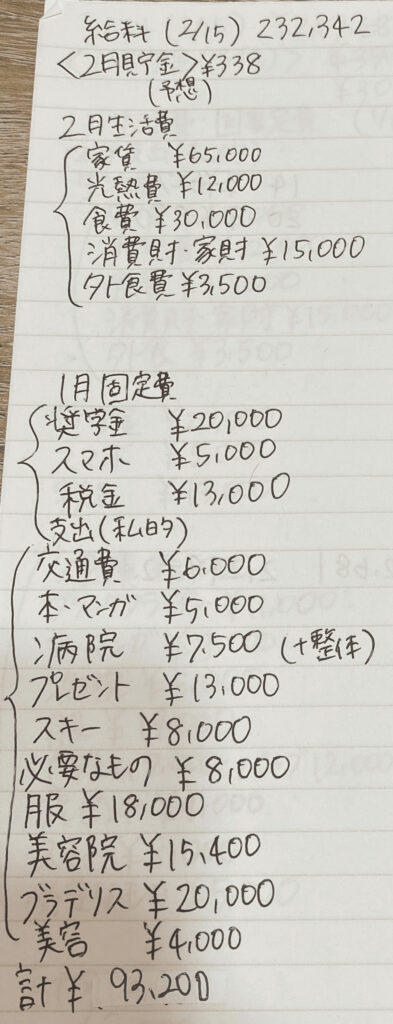 給料 (2/15) 232,342
<2月貯金>¥338
(予想)
2月生活費
家賃 ¥65,000
光熱費 ¥12,000
食費 ¥30,000
消費財・家財 ¥15,000
外食費 ¥3,500
1月固定費
奨学金 ¥20,000
スマホ ¥5,000
税金 ¥13,000
支出(私的)
交通費 ¥6,000
本・マンガ ¥5,000
病院 ¥7,500 (+整体)
プレゼント ¥13,000
スキー ¥8,000
必要なもの ¥8,000
服 ¥18,000
美容院 ¥15,400
ブラデリス ¥20,000
美容 ¥4,000
計 ¥ 93,200